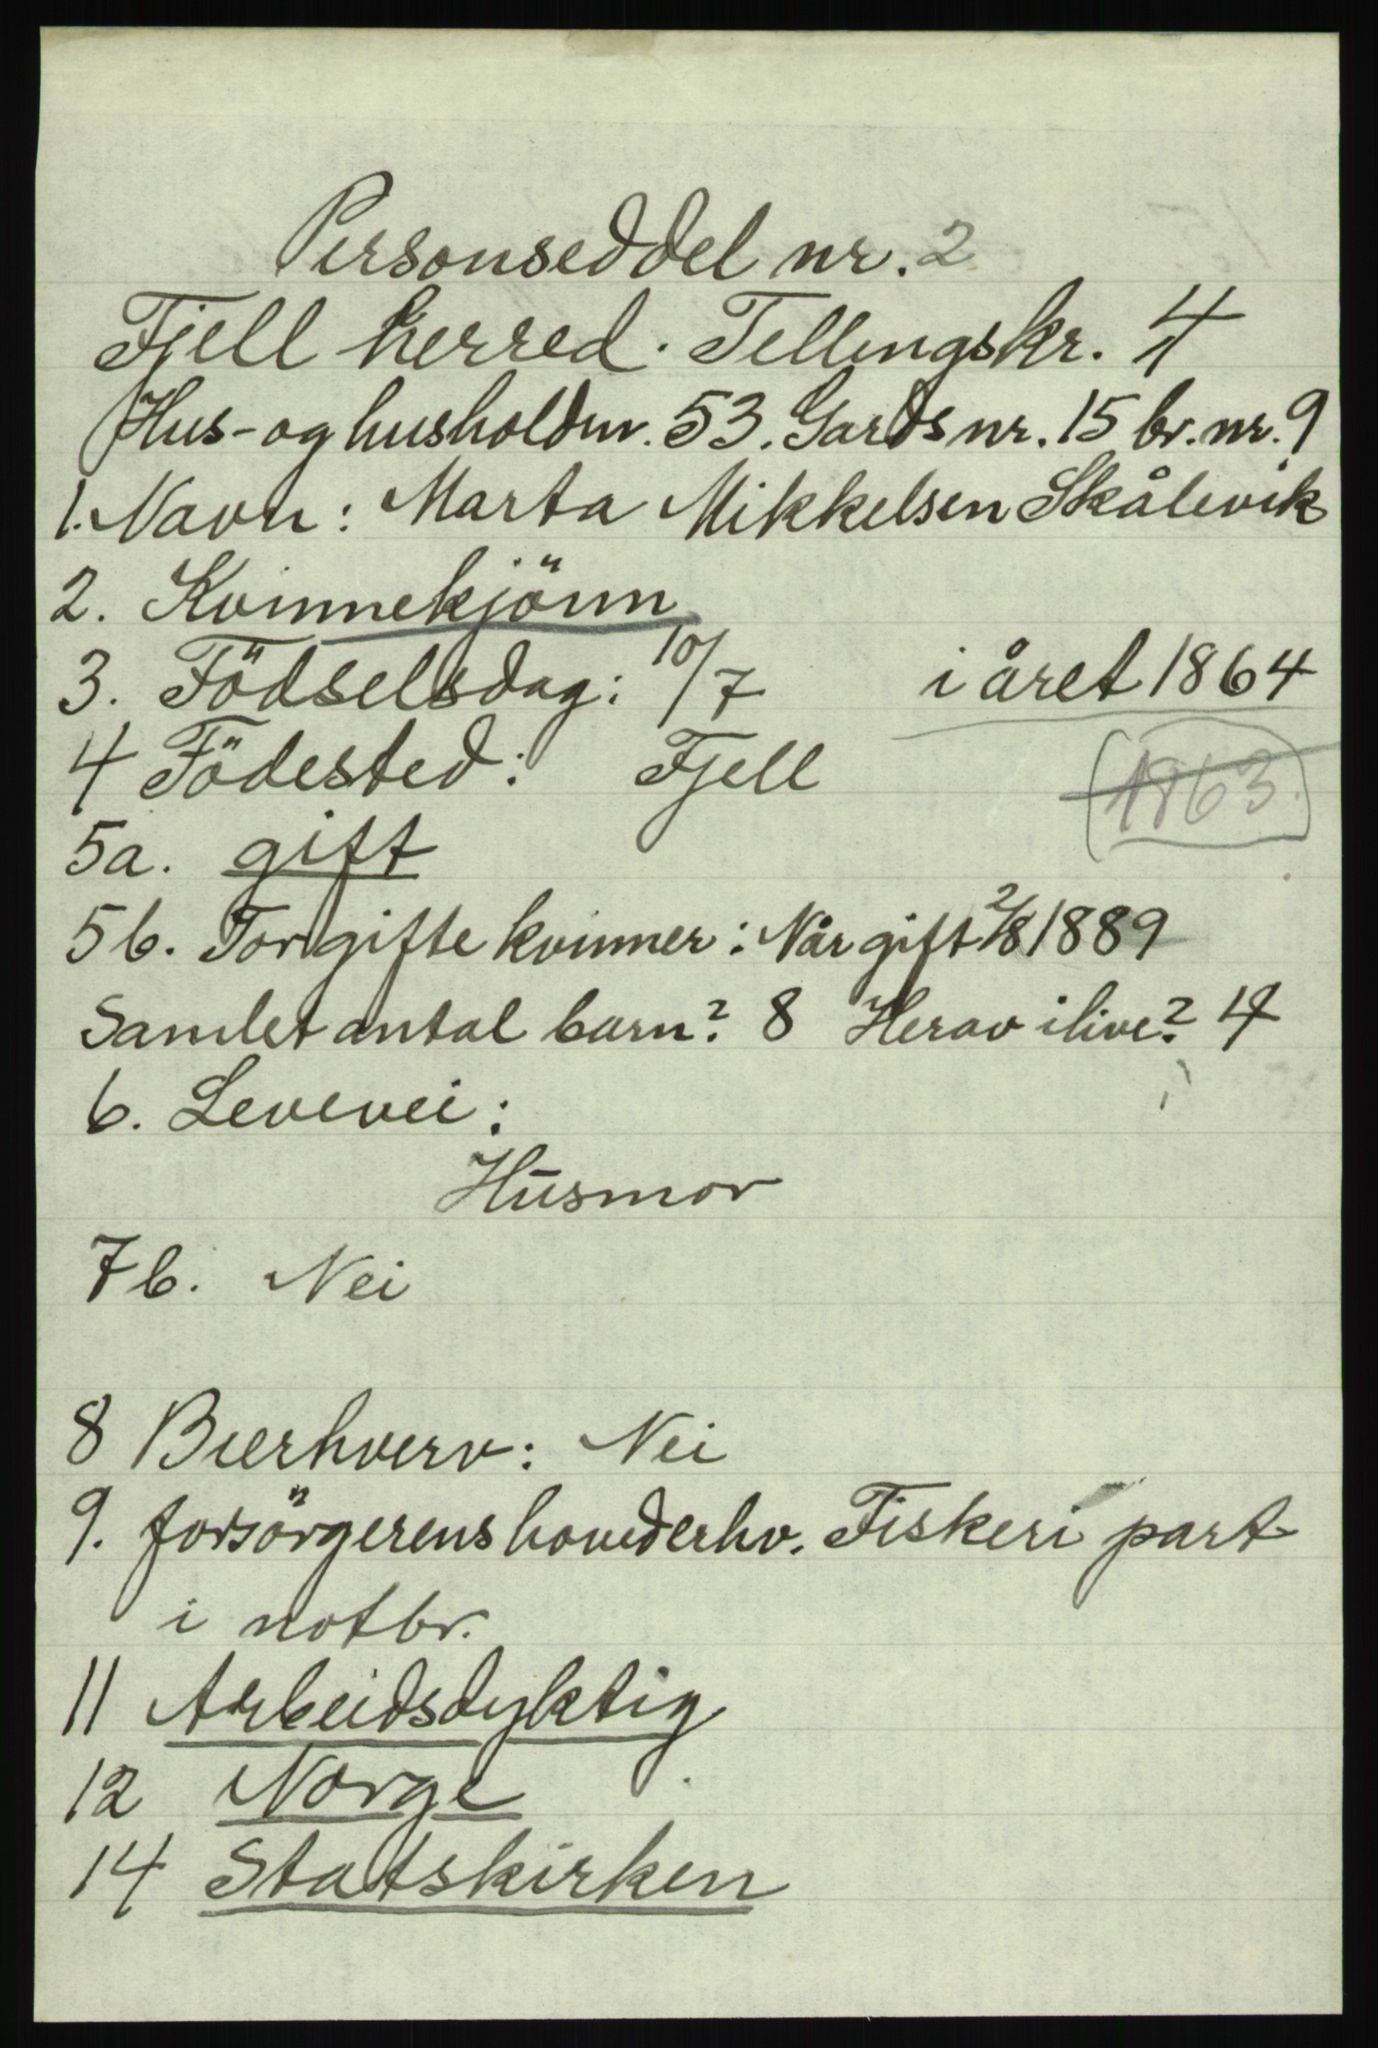 Personseddel nr. 2
Fjell herred. Tellingskr. 4
Hus- og husholdnr. 53. Gardsnr. 15 br. nr. 9
1. Navn: Marta Mikkelsen Skålevik
2. Kvinnekjönn
3. Födselsdag: 10/7 i året 1864
4 Födested: Fjell 1863
5a. gift
5b. For gifte kvinner: Når gift 2/8 1889
Samlet antal barn? 8 Herav ilive? 4
6. Levevei:
Husmor
7b. Nei
8 Bierhverv: Nei
9. forsörgerens hovederhv. Fiskeri part
i notbr.
11 Arbeidsdyktig
12 Norge
14 Statskirken